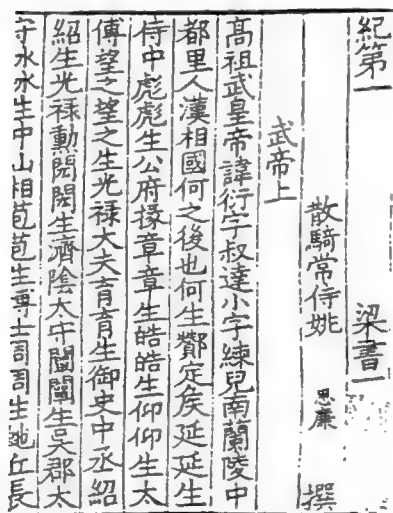 紀第一 梁書一
散騎常侍姚 思廉 撰
武帝上
髙祖武皇帝諱衍字叔達小字練兒南蘭陵中
都里人漢相國何之後也何生酇定侯延延生
侍中彪彪生公府掾章章生皓皓生仰仰生太
傅望之望之生光禄大夫育育生御史中丞紹
紹生光禄勳閎閎生濟陰太守闡闡生吳郡太
守水水生中山相苞苞生博士周周生虵丘長